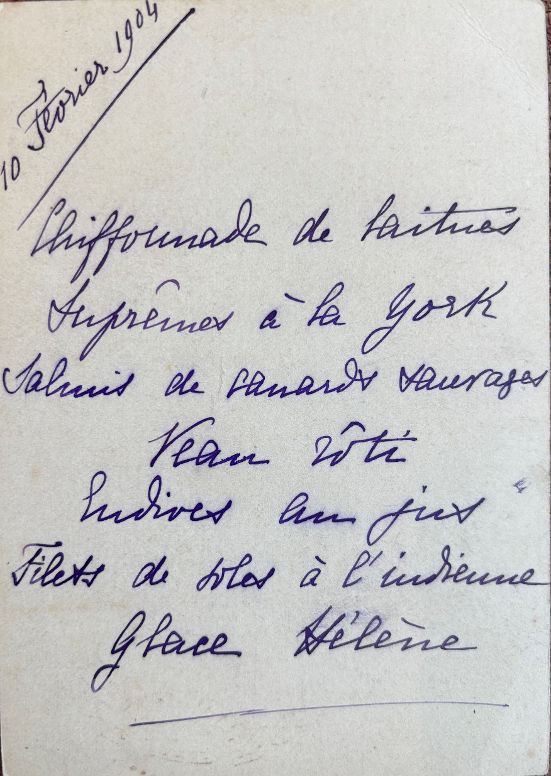 10 Février 1904
Chiffonnade de laitues
Suprêmes à la York
Salmis de canards sauvages
Veau rôti
Endives au jus
Filets de soles à l'indienne
Glace Hélène